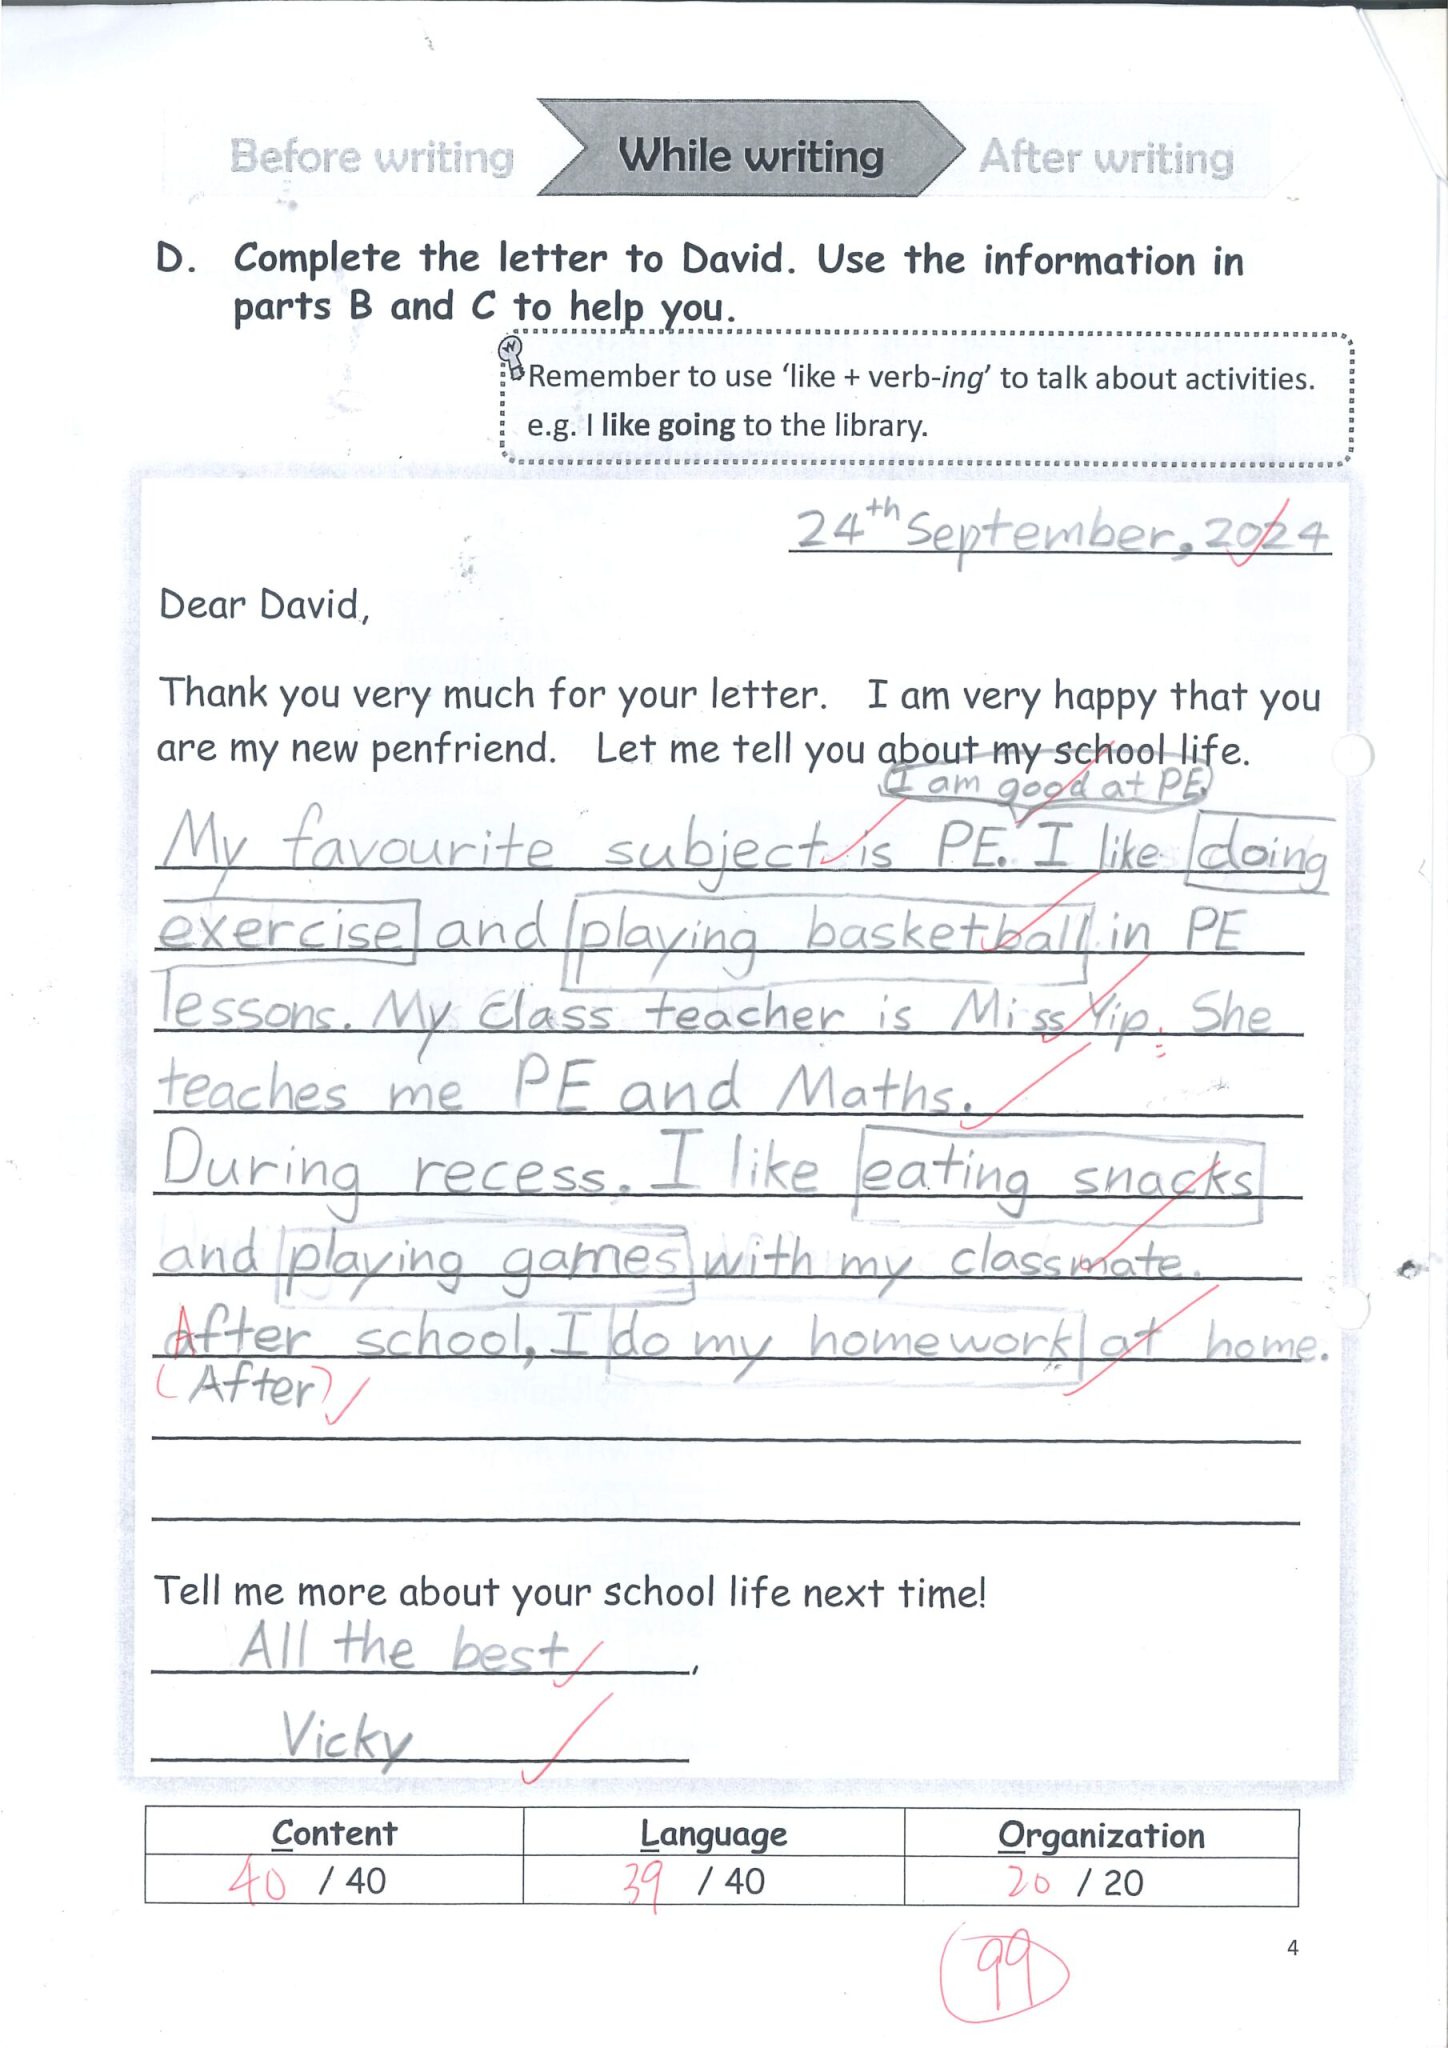 Before writing
While writing
After writing
D. Complete the letter to David. Use the information in
parts B and C to help you.
Remember to use 'like + verb-ing' to talk about activities.
e.g. I like going to the library.
24th September, 2024
Dear David,
Thank you very much for your letter. I am very happy that you
are my new penfriend. Let me tell you about my school life.
I am good at PE.
My favourite subject is PE. I like doing
exercise and playing basketball in PE
lessons. My class teacher is Miss Yip. She
teaches me PE and Maths.
During recess. I like eating snacks
and playing games with my classmate.
After school, I do my homework at home.
(After)
Tell me more about your school life next time!
All the best,
Vicky
Content Language Organization
40 / 40 39 / 40 20 / 20
99
4